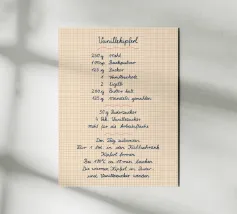 Vanillekipferl
250 g Mehl
1 Msp. Backpulver
125 g Zucker
1 Vanilleschote
2 Eigelb
200 g Butter kalt
125 g Mandeln gemahlen
50 g Puderzucker
4 Pck. Vanillezucker
Mehl für die Arbeitsfläche
Den Teig zubereiten
Für 1 Std. in den Kühlschrank
Kipferl formen
Bei 175°C 10 min backen
Die warmen Kipferl in Puder-
und Vanillezucker wenden